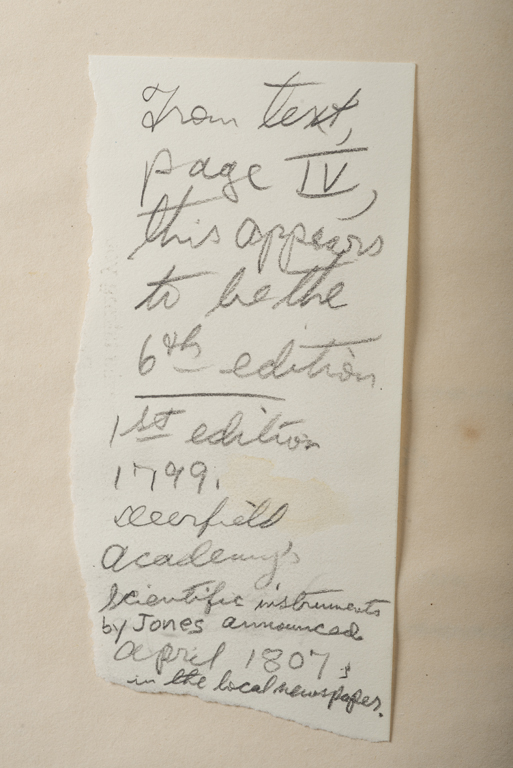 From text,
page IV,
this appears
to be the
6th edition
1st edition
1799.
Deerfield
Academy's
scientific instruments
by Jones announced
April 1807,
in the local newspaper.